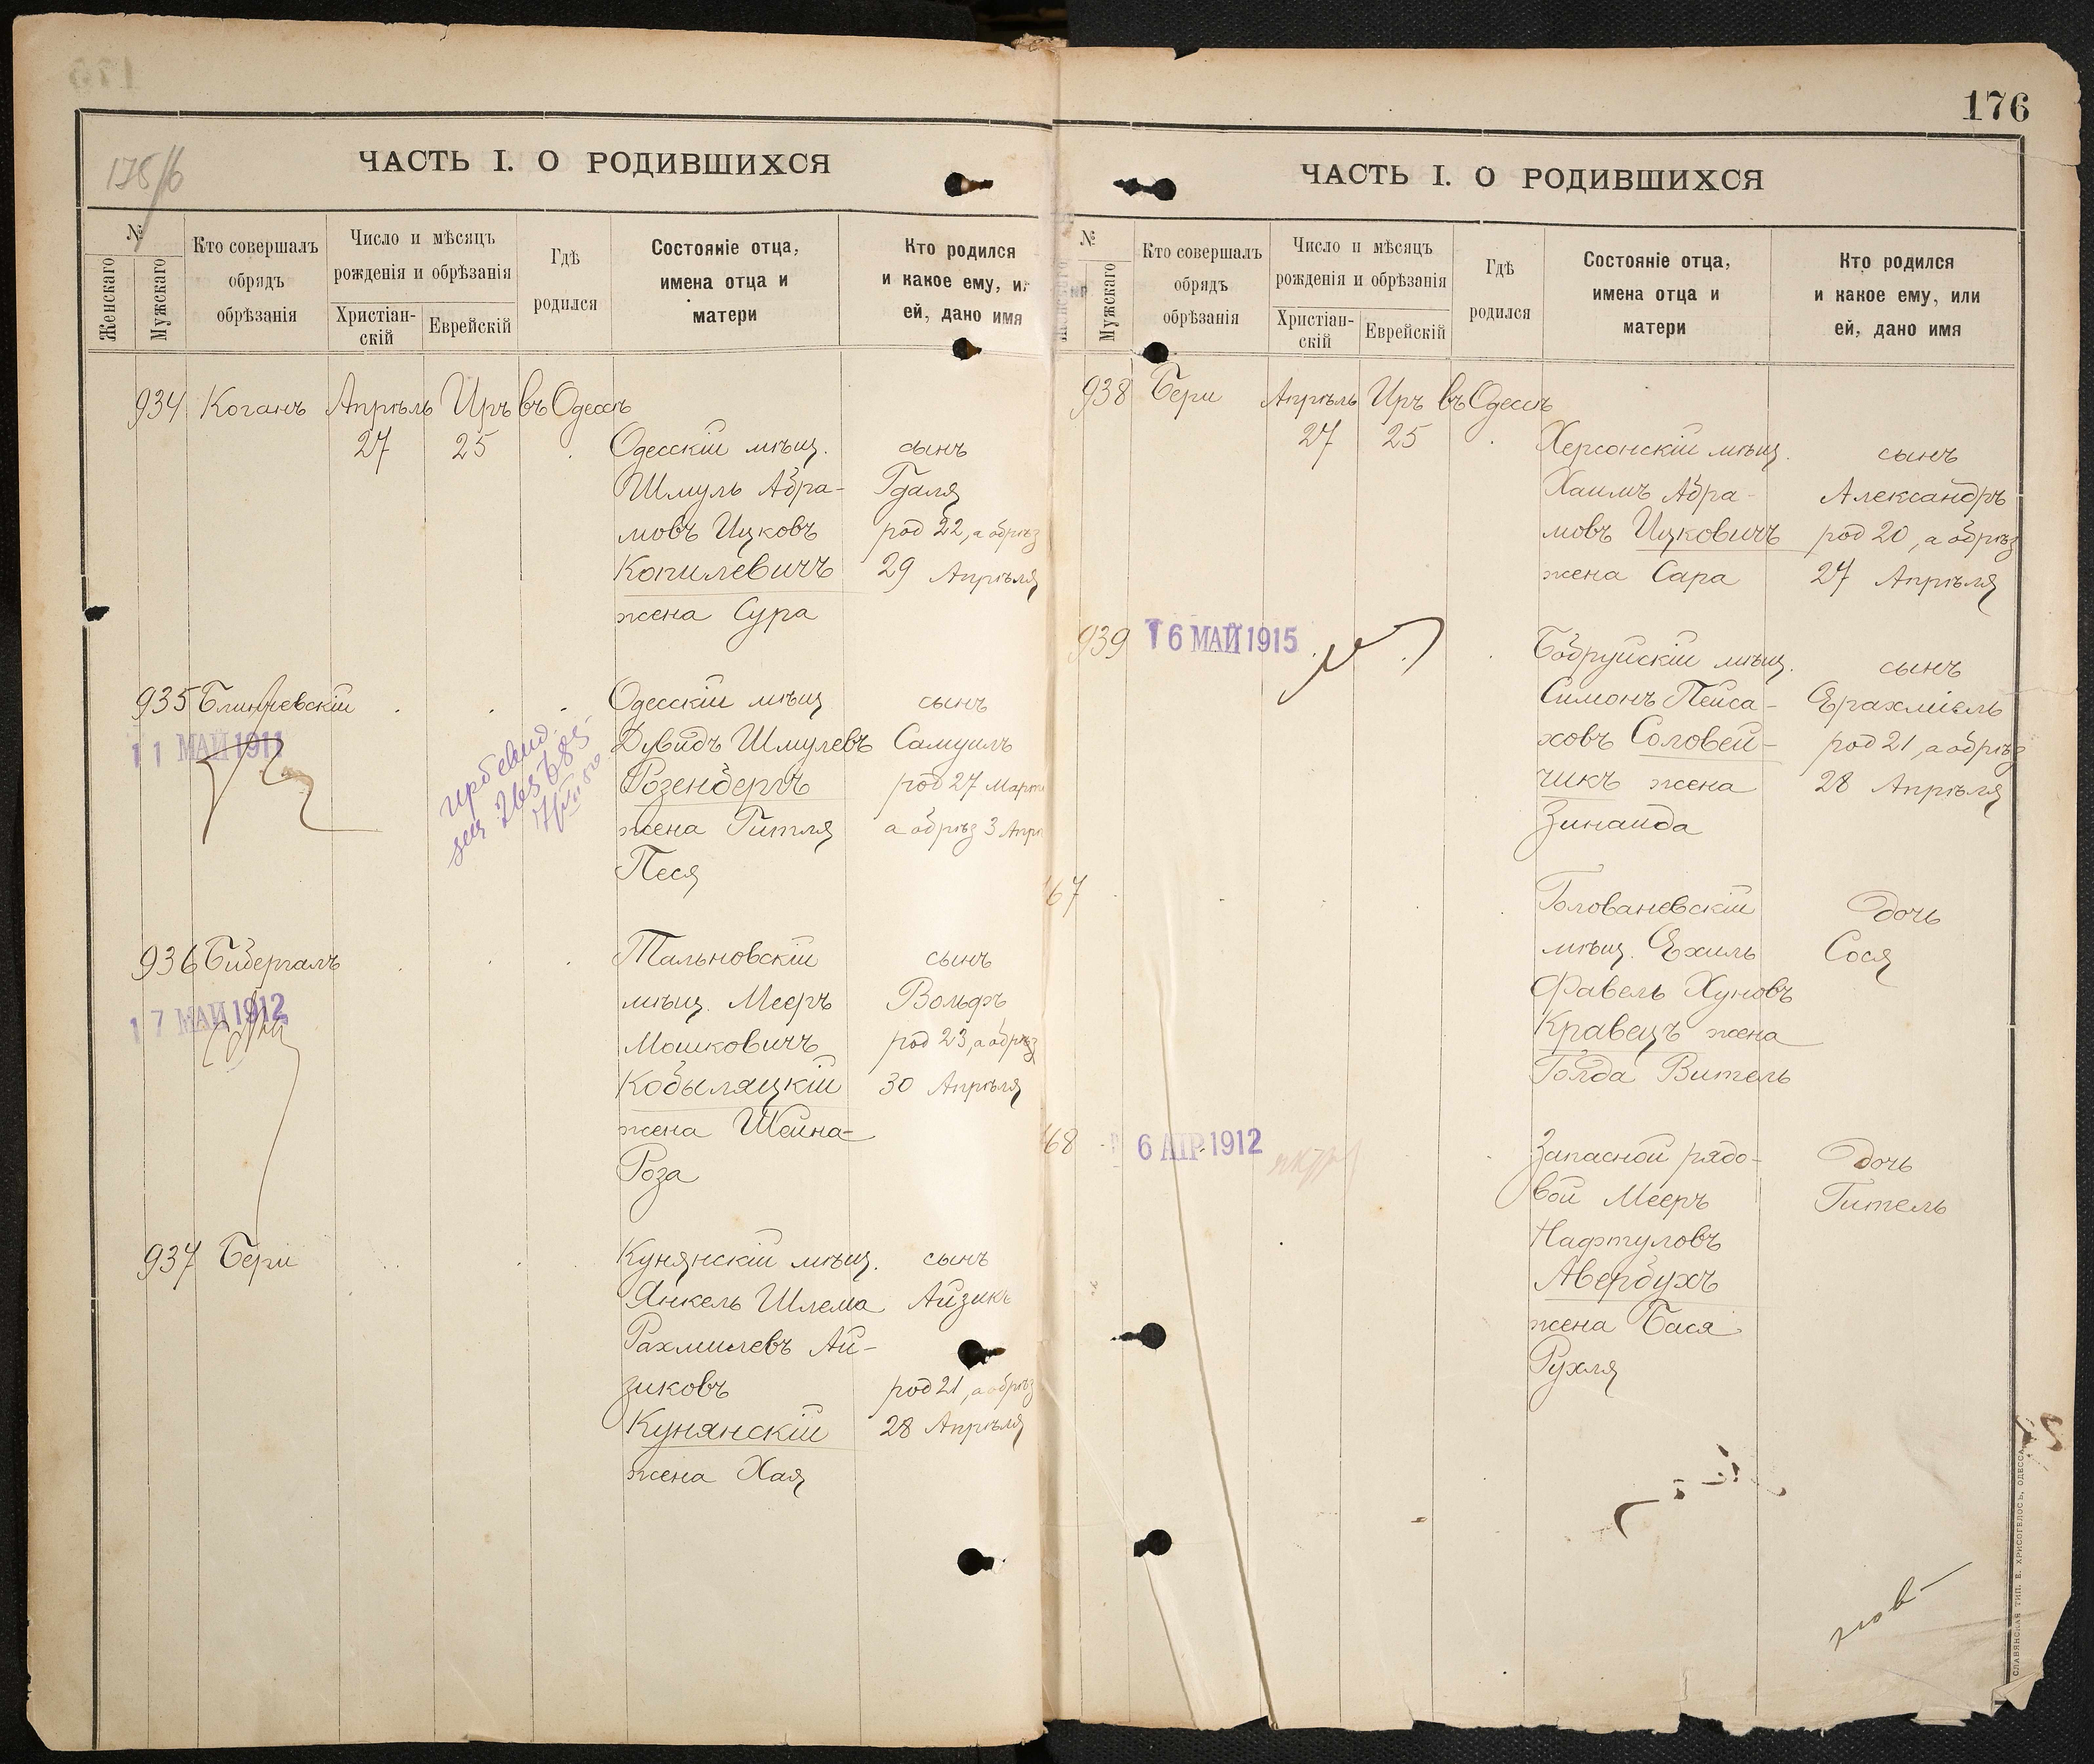 176
ЧАСТЬ I. О РОДИВШИХСЯ
№
Женскаго
Мужскаго
Кто совершалъ
обрядъ
обрѣзанія
Число и мѣсяцъ
рожденія и обрѣзанія
Христіан-
скій
Еврейскій
Гдѣ
родился
Состояніе отца,
имена отца и
матери
Кто родился
и какое ему, и
ей, дано имя
934 Коганъ Апрѣль Иръ въ Одессѣ
27 25 Одесскій мѣщ. сынъ
Шмуль Абра- Гдаля
мовъ Ицковъ род 22, а обрѣз
Копилевичъ 29 Апрѣля
жена Сура
935 Одесскій мѣщ сынъ
11 МАЙ 1911
Дувидъ Шмулевъ Самуилъ
Розенбергъ род 27 Март
жена Гитля а обрѣз 3 Апр
Песя
936 Бибергалъ Тальновскій сынъ
17 МАЙ 1912
мѣщ. Мееръ Вольфъ
Мошковичъ род 23, а обрѣз
Кобыляцкій 30 Апрѣля
жена Шейна-
Роза
937 Бери Кунянскій мѣщ. сынъ
Янкель Шлема Айзикъ
Рахмилевъ Ай-
зиковъ род 21, а обрѣз
Кунянскій 28 Апрѣля
жена Хая
ЧАСТЬ I. О РОДИВШИХСЯ
№
Мужскаго
Кто совершалъ
обрядъ
обрѣзанія
Число и мѣсяцъ
рожденія и обрѣзанія
Христіан-
скій
Еврейскій
Гдѣ
родился
Состояніе отца,
имена отца и
матери
Кто родился
и какое ему, или
ей, дано имя
938 Бери Апрѣль Иръ въ Одессѣ
27 25 Херсонскій мѣщ. сынъ
Хаимъ Абра- Александръ
мовъ Ицковичъ род 20, а обрѣз
жена Сара 27 Апрѣля
939 16 МАЙ 1915 Бобруйскій мѣщ. сынъ
Симонъ Пейса- Ерахміель
ховъ Соловей- род 21, а обрѣз
чикъ жена 28 Апрѣля
Зинаида
67 Голованевскій дочь
мѣщ. Ехиль Сося
Фавель Хуновъ
Кравецъ жена
Голда Витель
68 6 АПР 1912 Запасной рядо- дочь
вой Мееръ Гитель
Нафтуловъ
Авербухъ
жена Бася
Рухля
СЛАВЯНСКАЯ ТИП. Е. ХРИСОГЕЛОСЪ, ОДЕССА